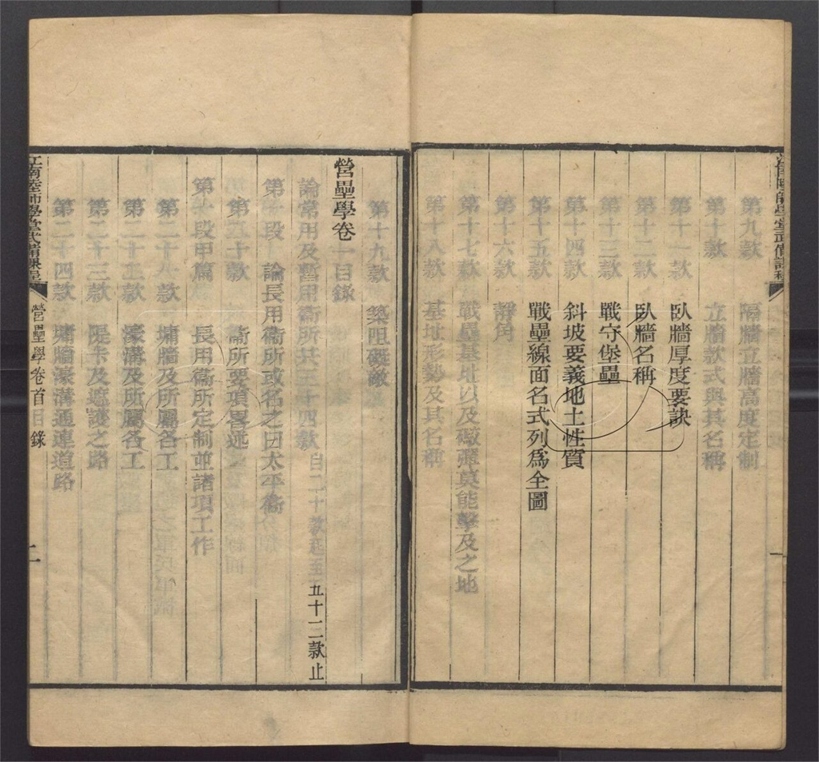 第九款 隔牆立牆高度定制
第十款 立牆款式與其名稱
第十一款 臥牆厚度要訣
第十二款 臥牆名稱
第十三款 戰守堡壘
第十四款 斜坡要義地土性質
第十五款 戰壘線面名式列爲全圖
第十六款 靜角
第十七款 戰壘基址以及礮彈莫能擊及之地
第十八款 基址形勢及其名稱
第十九款 築阻礙敵
營壘學卷一目錄
論常用及暫用衞所共三十四款 自二十款起至五十二款止
第一段 論長用衞所或名之曰太平衞
第二十款 衞所要項畧述
第一段甲篇 長用衞所定制並諸項工作
第二十一款 墉牆及所屬各工
第二十二款 濠溝及所屬各工
第二十三款 隄卡及遮護之路
第二十四款 墉牆濠溝通連道路
江南陸師學堂武備課程
營壘學卷首目錄
二